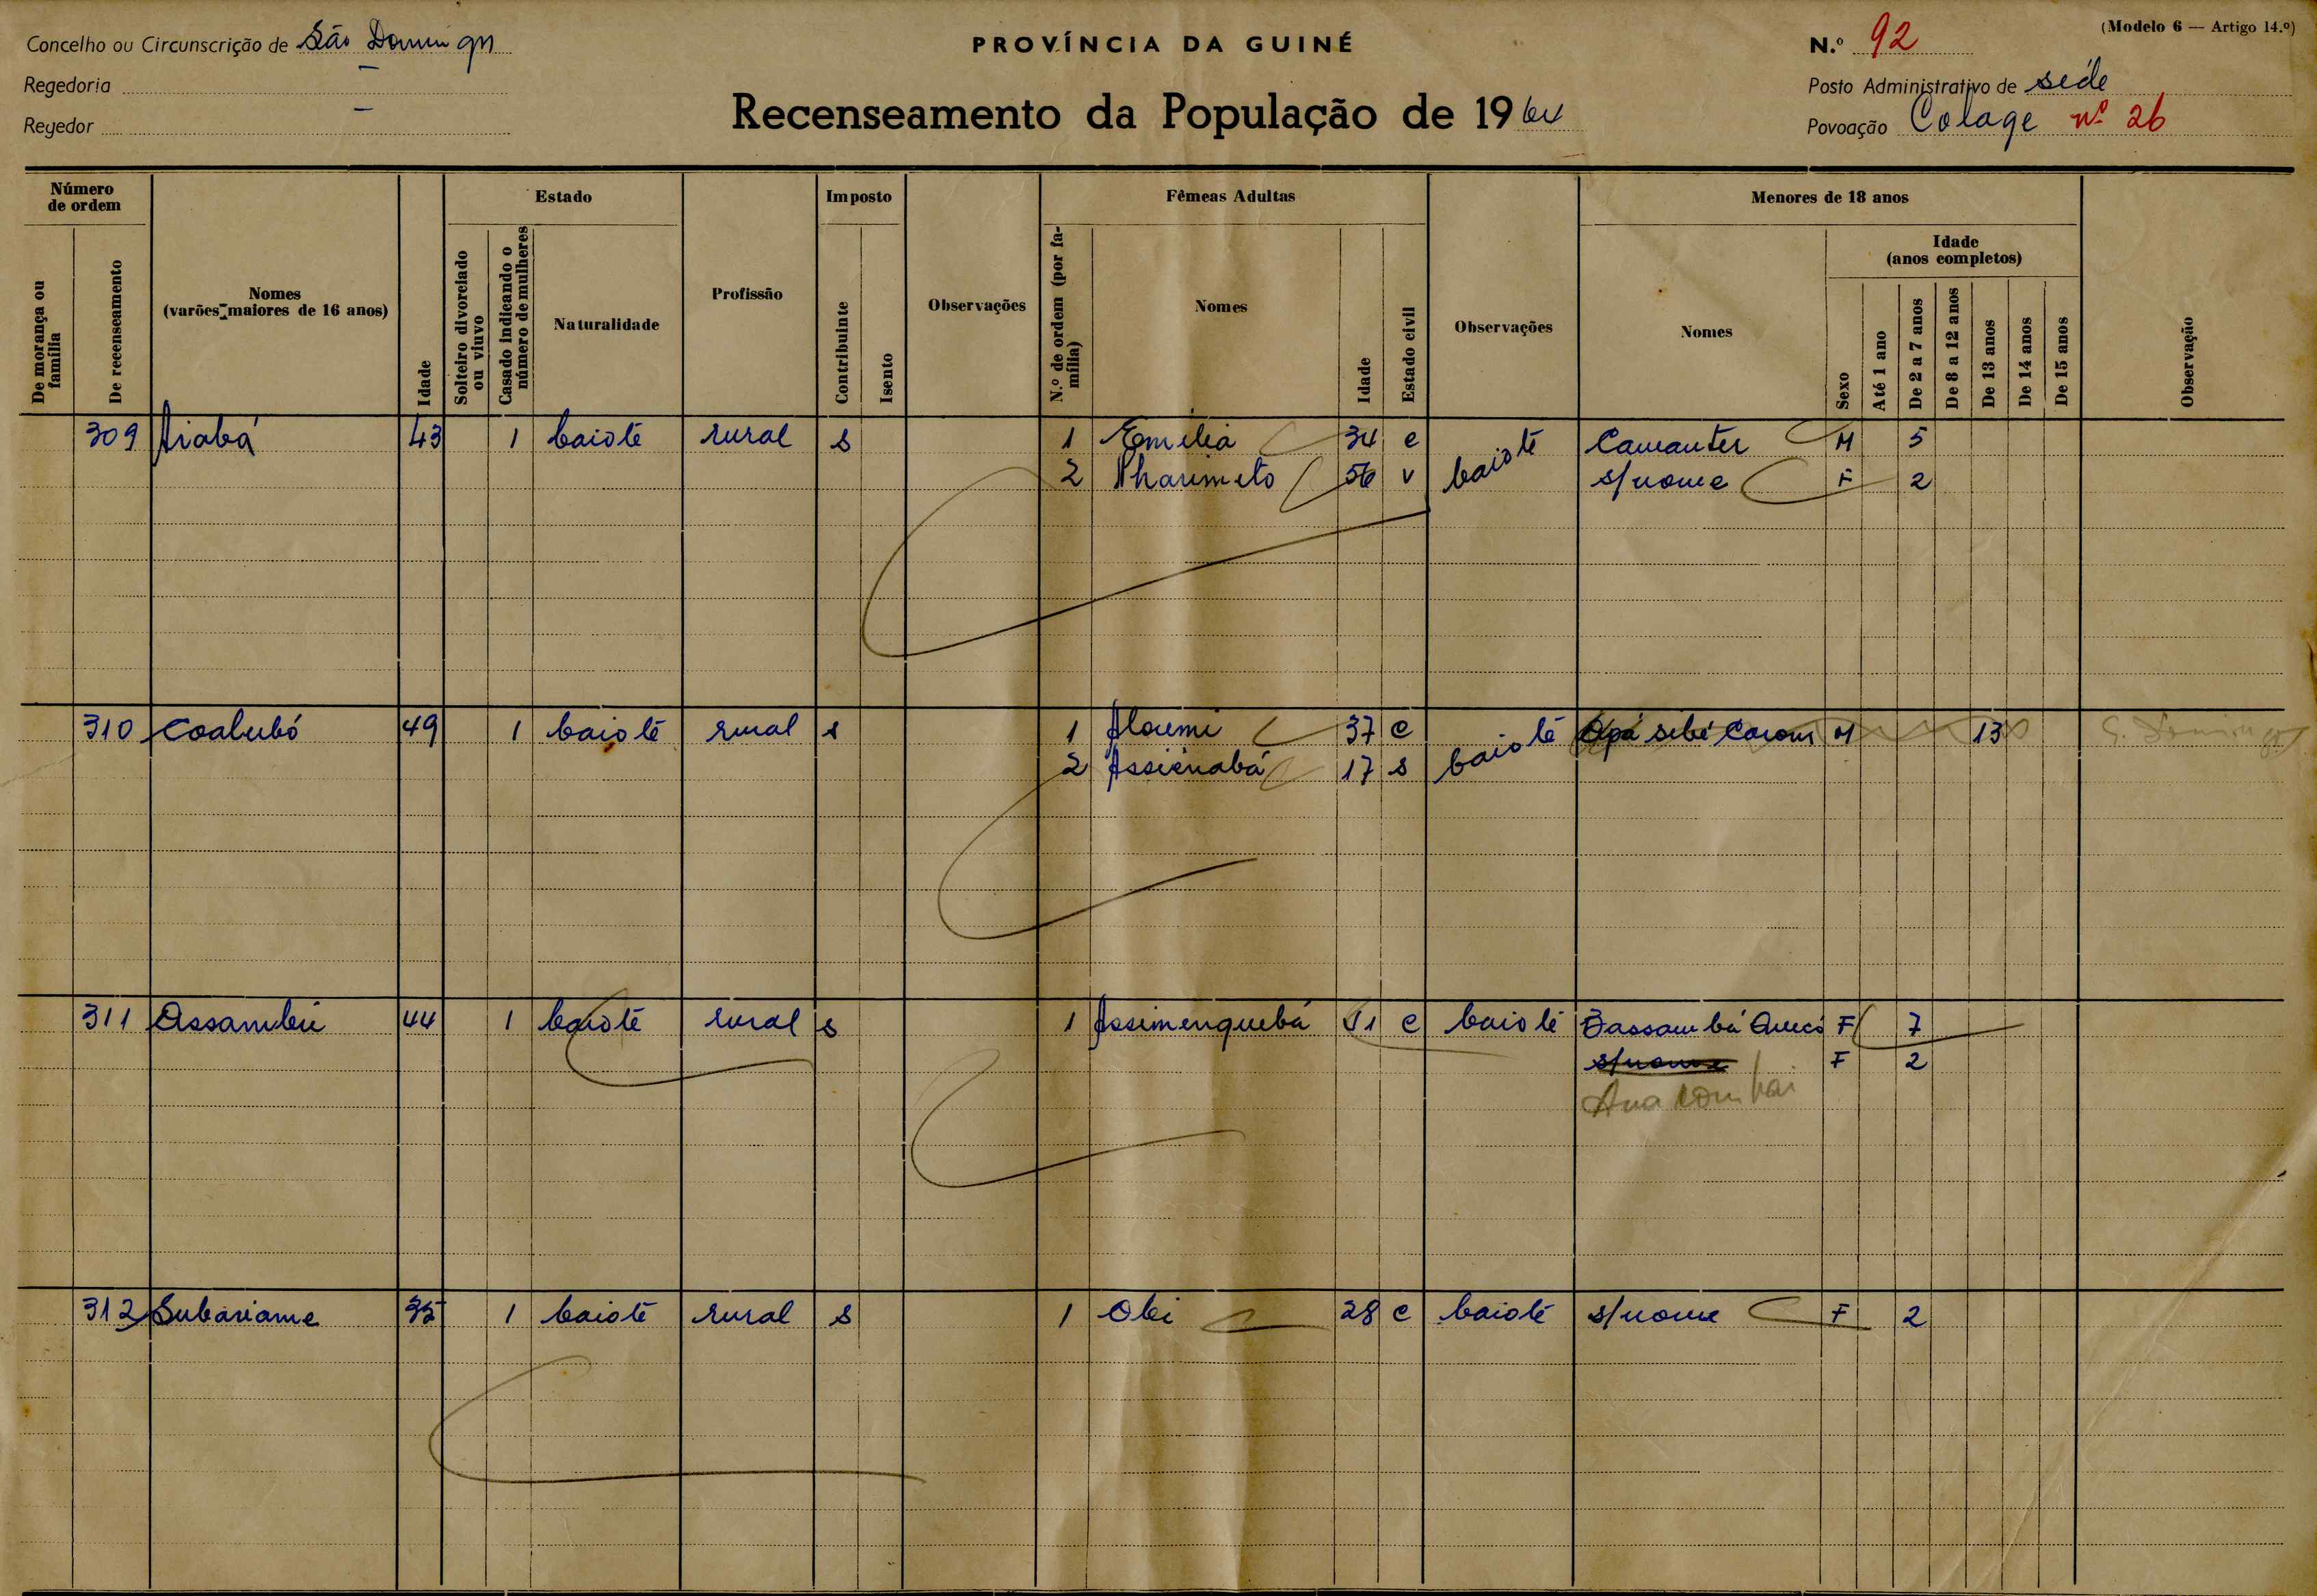 Concelho ou Circunscrição de São Domingos
PROVÍNCIA DA GUINÉ
N.º 92
(Modelo 6 — Artigo 14.º)
Regedoria —
Posto Administrativo de séde
Regedor —
Recenseamento da População de 1964
Povoação Colage nº 26
Número de ordem
De morança ou família
De recenseamento
Nomes
(varões maiores de 16 anos)
Idade
Estado
Solteiro divorciado ou viuvo
Casado indicando o número de mulheres
Naturalidade
Profissão
Imposto
Contribuinte
Isento
Observações
Fêmeas Adultas
N.º de ordem (por família)
Nomes
Idade
Estado civil
Observações
Menores de 18 anos
Nomes
Sexo
Idade
(anos completos)
Até 1 ano
De 2 a 7 anos
De 8 a 12 anos
De 13 anos
De 14 anos
De 15 anos
Observação
309 43 1 baiote rural s 1 Emilia 34 c baiote Camanter M 5
2 56 v s/nome F 2
310 Coalubó 49 1 baiote rural s 1 Aloumi 37 c baiote M 13 S. Domingos
2 Assienabá 17 s
311 44 1 baiote rural s 1 Assimenquebá c baiote F 7
s/nome F 2
Ana
312 Subariame 35 1 baiote rural s 1 Obi 28 c baioté s/nome F 2